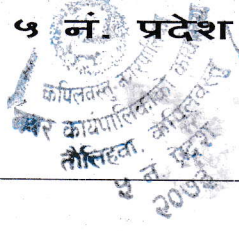 ५ नं. प्रदेश
कपिलवस्तु
नगर कार्यपालिकाको
तौलिहवा, कपिलवस्तु
५ नं. प्रदेश
२०७३